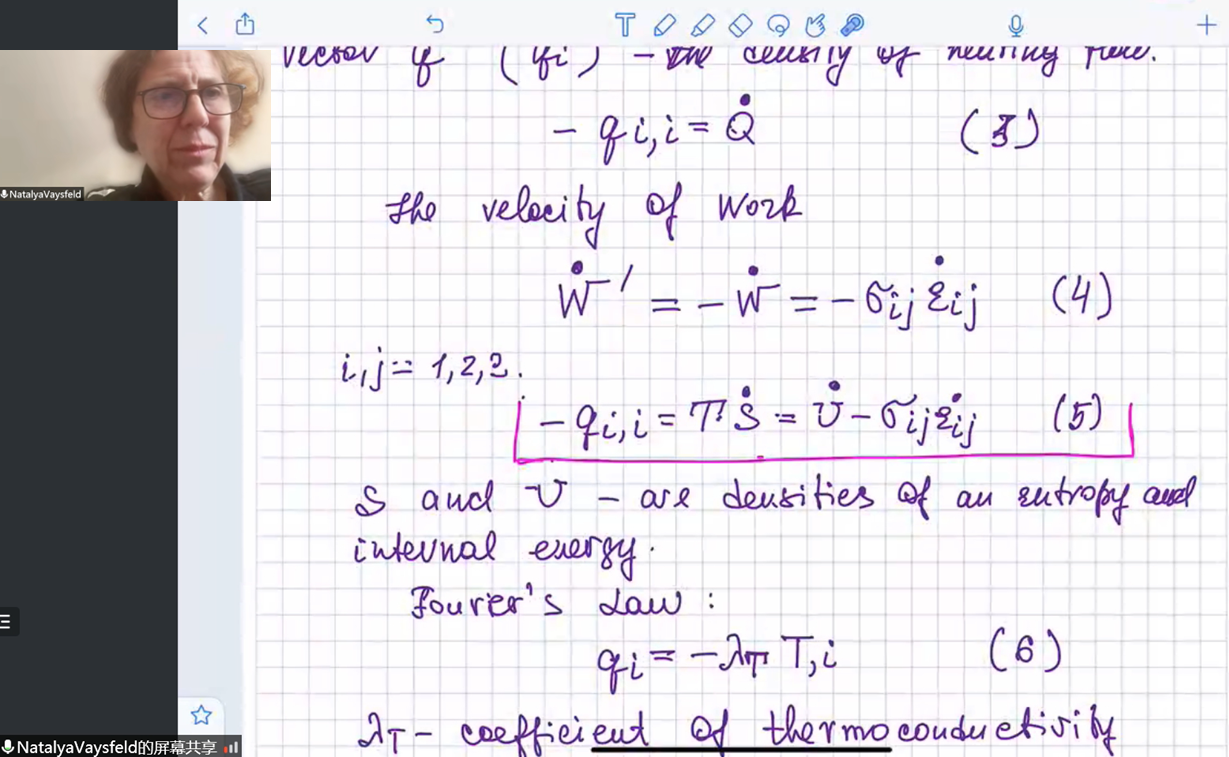 vector q (qi) - the density of heating flow.
- qi,i = Q̇ (3)
NatalyaVaysfeld
the velocity of work
Ẇ' = - Ẇ = - σij ε̇ij (4)
i,j = 1,2,3.
- qi,i = TṠ = U̇ - σij ε̇ij (5)
S and U - are densities of an entropy and
internal energy.
Fourier's Law :
qi = -λT T,i (6)
λT - coefficient of thermoconductivity
NatalyaVaysfeld的屏幕共享